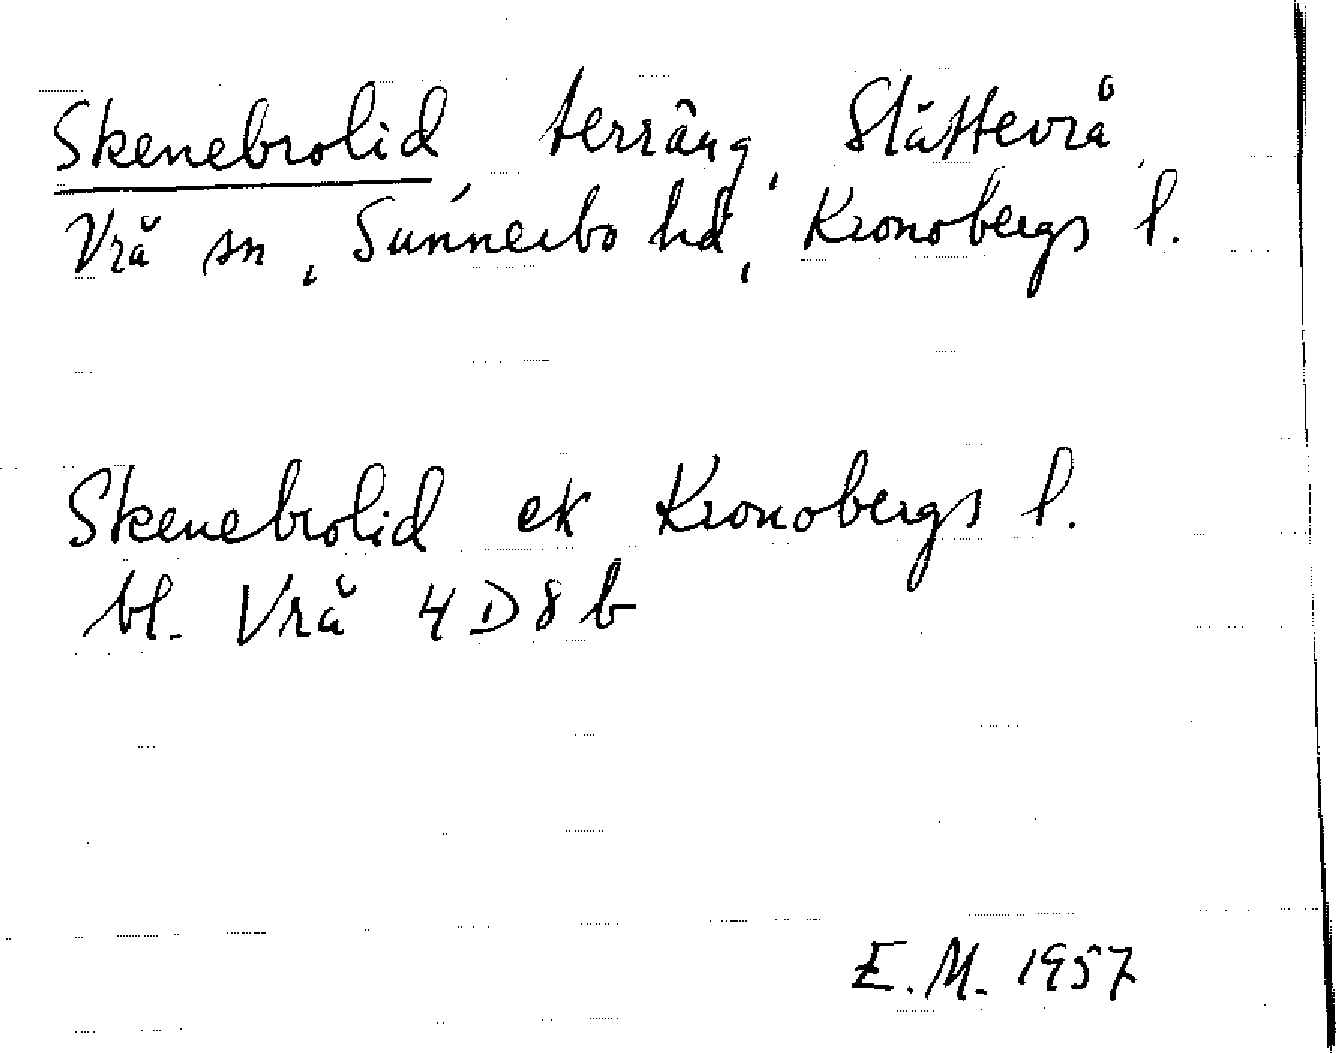 Skenebrolid terräng, Slättevrå,
Vrå sn, Sunnerbo hd, Kronobergs l.
Skenebrolid ek Kronobergs l.
bl. Vrå 4D8b
E.M. 1957